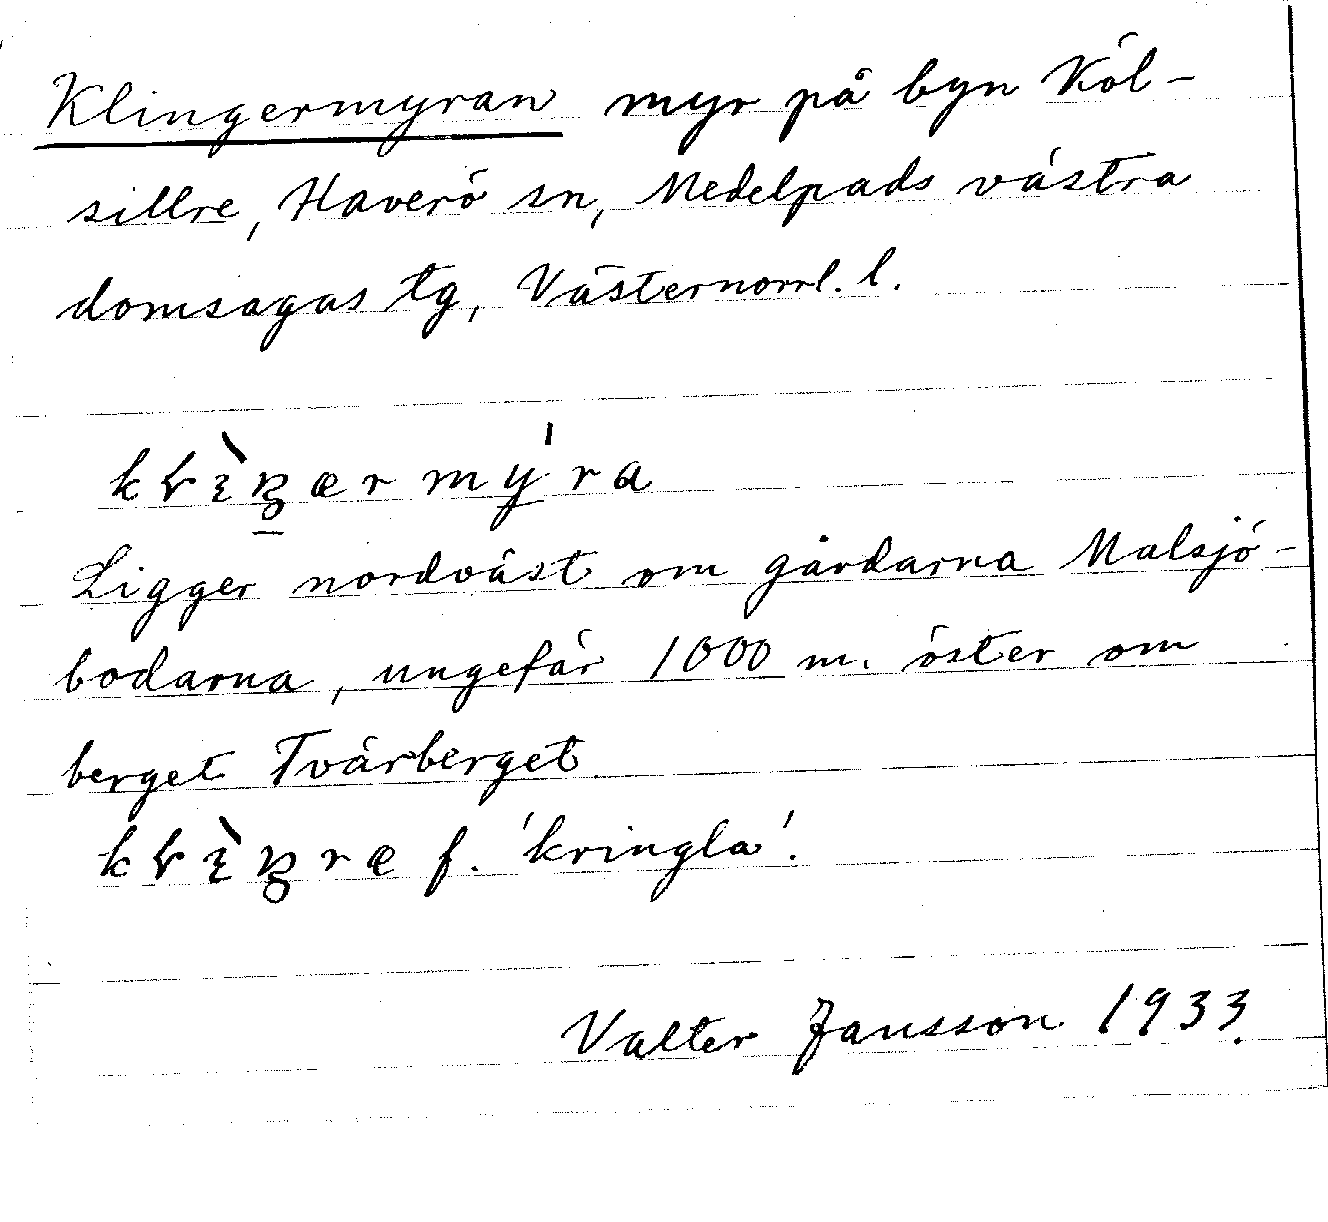 Klingermyran myr på byn Köl-
sillre, Haverö sn, Medelpads västra
domsagas tg, Västernorrl. l.
mýra
Ligger nordväst om gårdarna Malsjö-
bodarna, ungefär 1000 m. öster om
berget Tvärberget
f. 'kringla'.
Valter Jansson 1933.